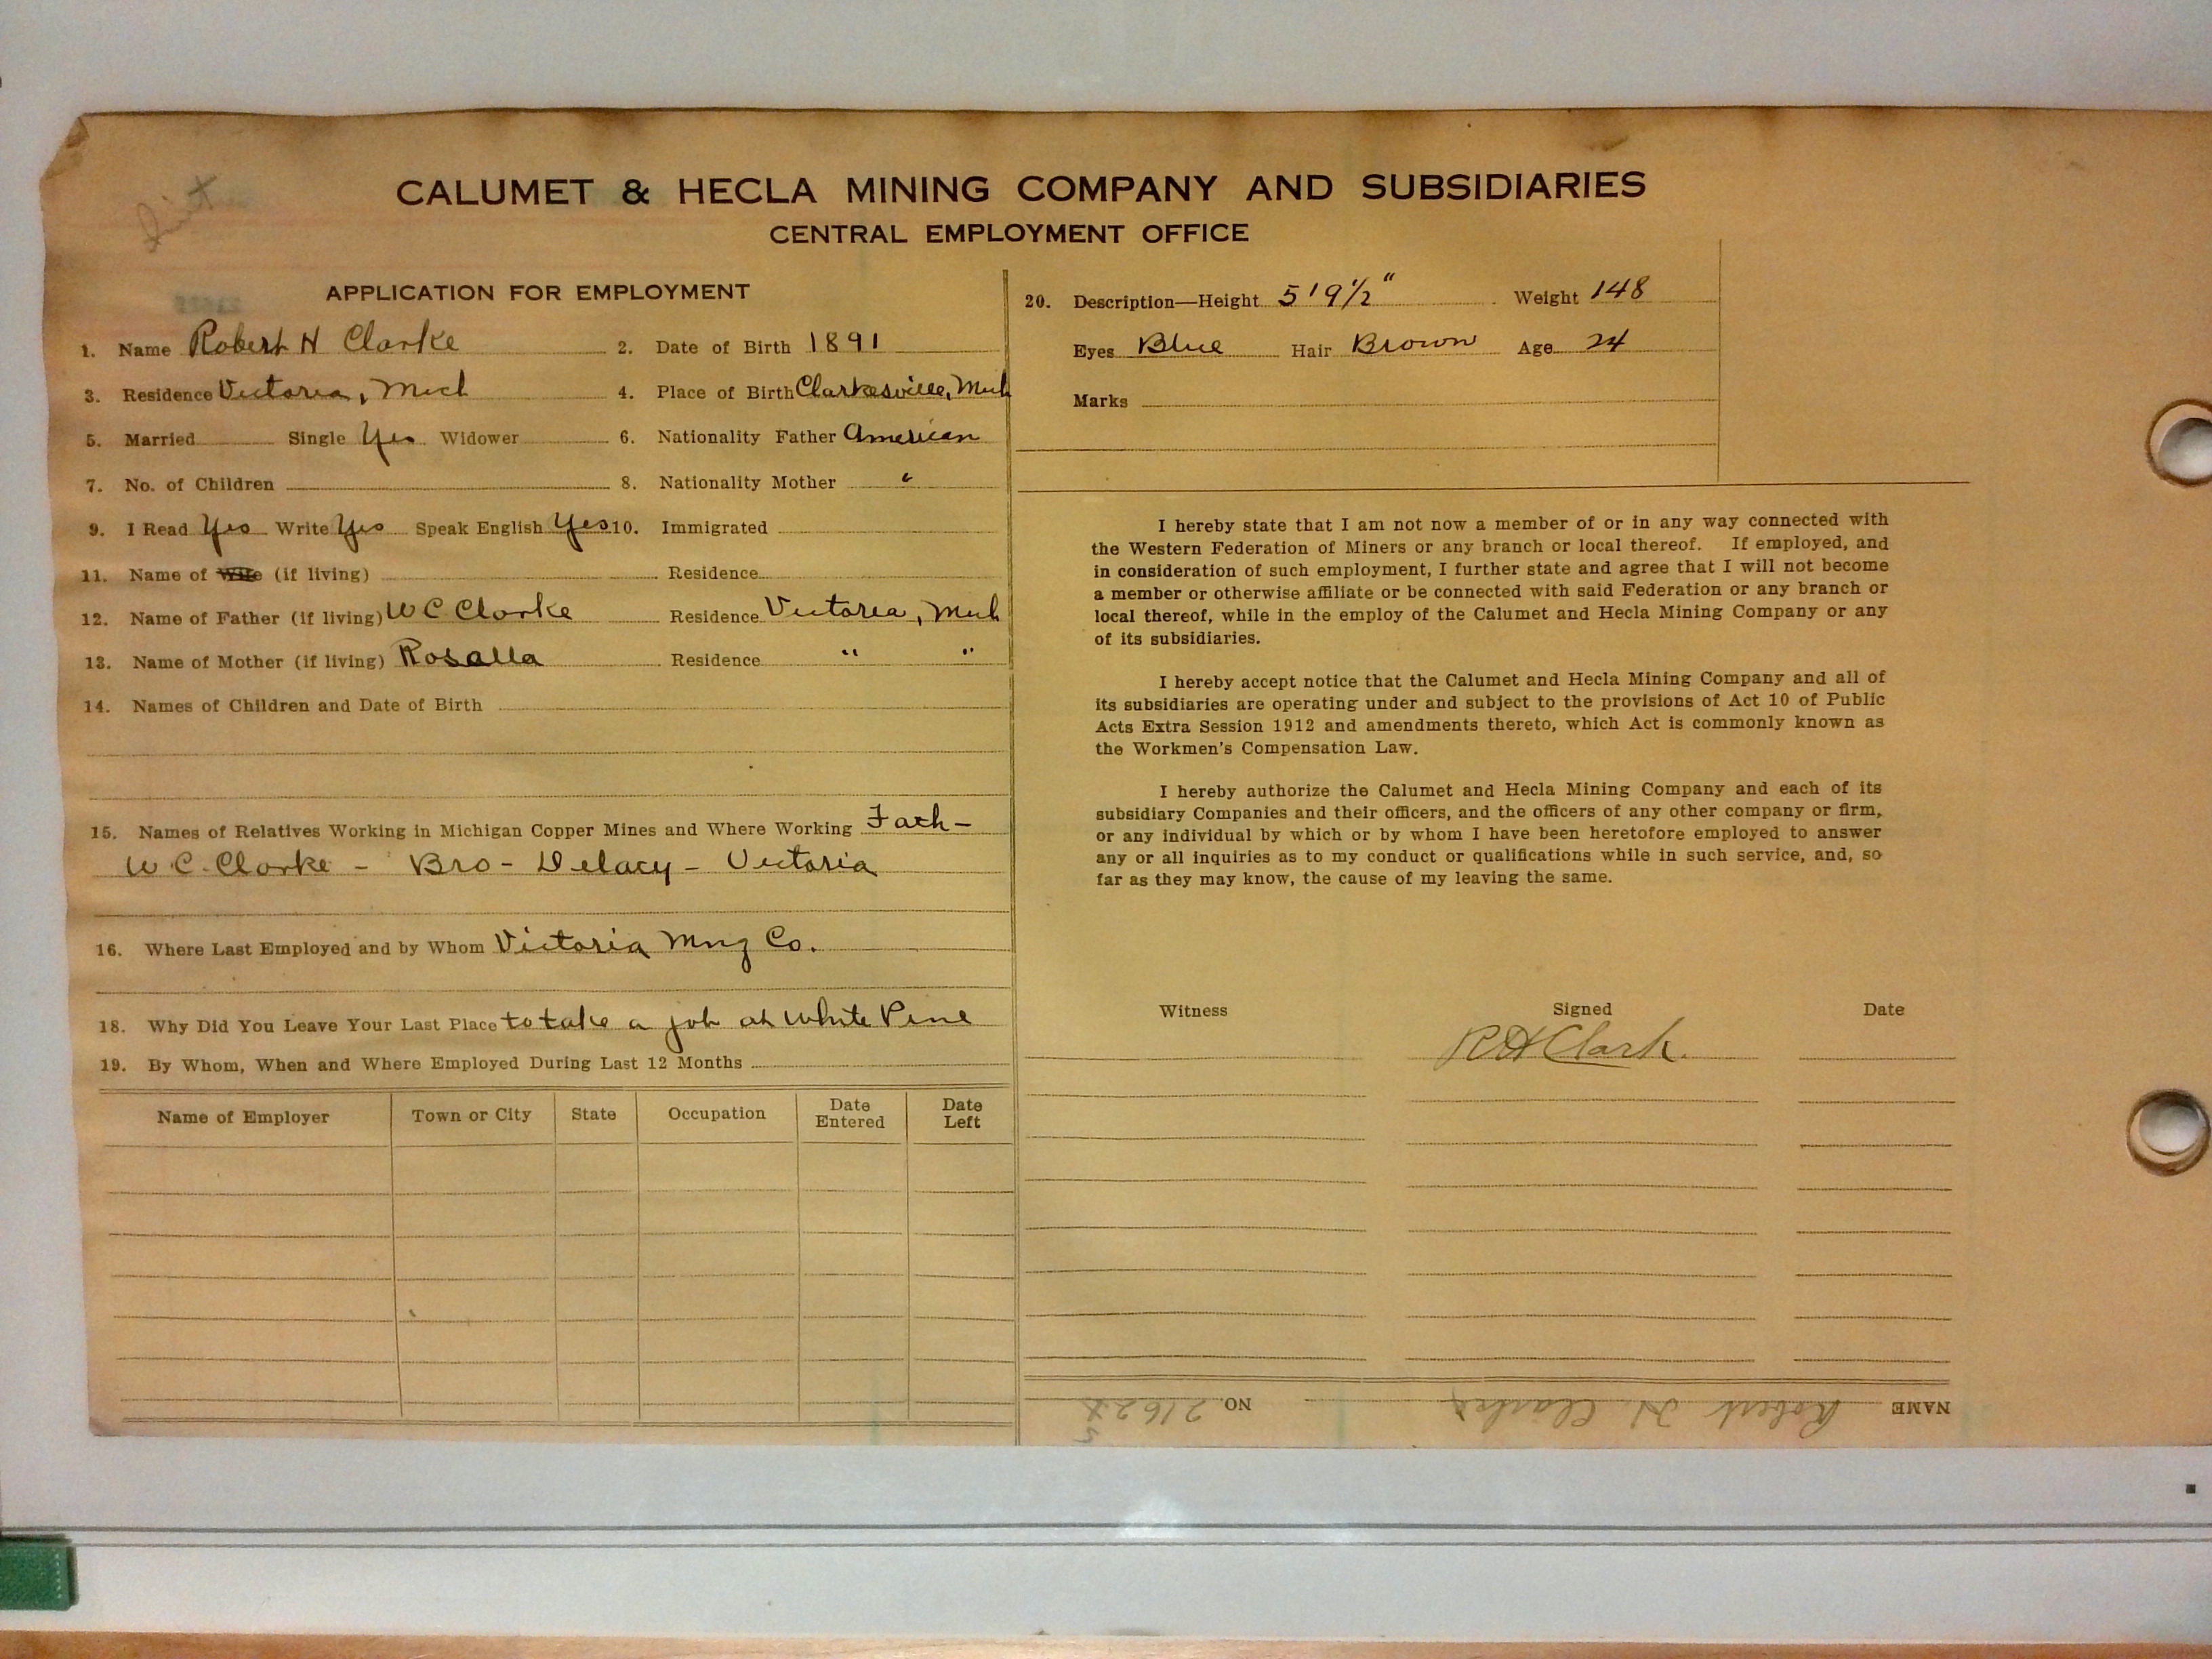 Quit
CALUMET & HECLA MINING COMPANY AND SUBSIDIARIES
CENTRAL EMPLOYMENT OFFICE
APPLICATION FOR EMPLOYMENT
1. Name Robert H Clarke 2. Date of Birth 1891
3. Residence Victoria, Mich 4. Place of Birth Clarkesville, Mich
5. Married Single Yes Widower 6. Nationality Father American
7. No. of Children 8. Nationality Mother "
9. I Read Yes Write Yes Speak English Yes 10. Immigrated
11. Name of Wife (if living) Residence
12. Name of Father (if living) W C Clarke Residence Victoria, Mich
13. Name of Mother (if living) Rosalla Residence " "
14. Names of Children and Date of Birth
15. Names of Relatives Working in Michigan Copper Mines and Where Working Fath-
W. C. Clarke - Bro - Delacy - Victoria
16. Where Last Employed and by Whom Victoria Mng Co.
18. Why Did You Leave Your Last Place to take a job at White Pine
19. By Whom, When and Where Employed During Last 12 Months
Name of Employer Town or City State Occupation Date Entered Date Left
20. Description—Height 5' 9 1/2" Weight 148
Eyes Blue Hair Brown Age 24
Marks
I hereby state that I am not now a member of or in any way connected with
the Western Federation of Miners or any branch or local thereof. If employed, and
in consideration of such employment, I further state and agree that I will not become
a member or otherwise affiliate or be connected with said Federation or any branch or
local thereof, while in the employ of the Calumet and Hecla Mining Company or any
of its subsidiaries.
I hereby accept notice that the Calumet and Hecla Mining Company and all of
its subsidiaries are operating under and subject to the provisions of Act 10 of Public
Acts Extra Session 1912 and amendments thereto, which Act is commonly known as
the Workmen's Compensation Law.
I hereby authorize the Calumet and Hecla Mining Company and each of its
subsidiary Companies and their officers, and the officers of any other company or firm,
or any individual by which or by whom I have been heretofore employed to answer
any or all inquiries as to my conduct or qualifications while in such service, and, so
far as they may know, the cause of my leaving the same.
Witness Signed Date
R H Clark.
NAME Robert H. Clarke NO.